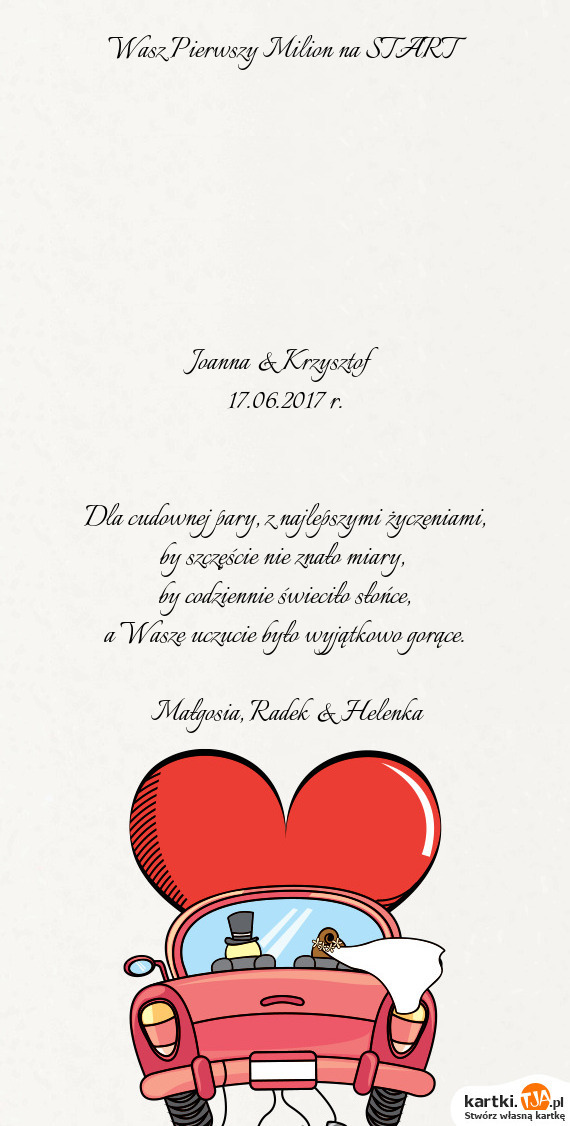 Wasz Pierwszy Milion na START
Joanna & Krzysztof
17.06.2017 r.
Dla cudownej pary, z najlepszymi życzeniami,
by szczęście nie znało miary,
by codziennie świeciło słońce,
a Wasze uczucie było wyjątkowo gorące.
Małgosia, Radek & Helenka
kartki.TJA.pl
Stwórz własną kartkę